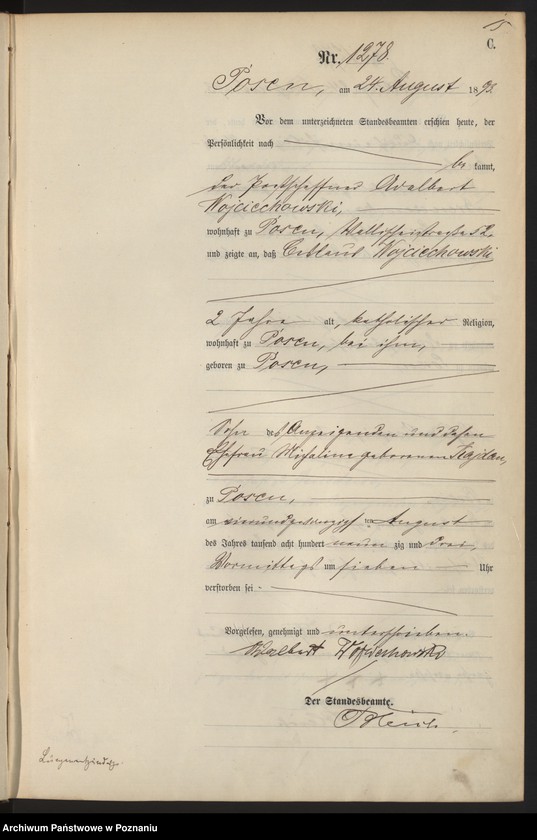 15
C.
Nr. 1278.
Posen, am 24. August 1893.
Vor dem unterzeichneten Standesbeamten erschien heute, der
Persönlichkeit nach
be kannt,
der Postschaffner Adalbert
Wojciechowski,
wohnhaft zu Posen, 2,
und zeigte an, daß Ceslaus Wojciechowski
2 Jahre alt, katholischer Religion,
wohnhaft zu Posen, bei ihm,
geboren zu Posen,
Sohn des Anzeigenden und dessen
Ehefrau Michalina geborenen
zu Posen,
am vierundzwanzigsten August
des Jahres tausend acht hundert neun zig und drei,
Vormittags um sieben Uhr
verstorben sei
Vorgelesen, genehmigt und unterschrieben.
Adalbert Wojciechowski
Der Standesbeamte.
Lungenentzündung.
Archiwum Państwowe w Poznaniu